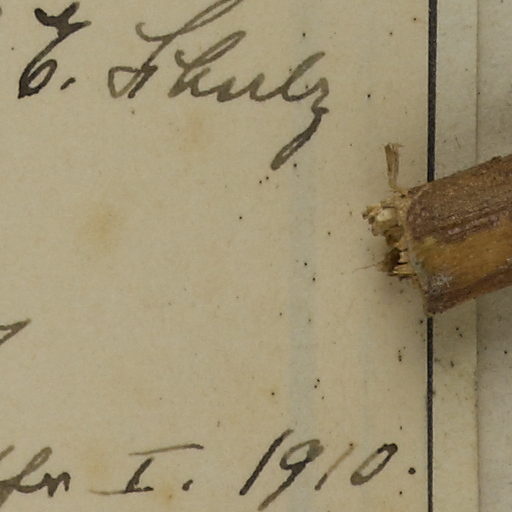 E. Shulz
I. 1910.